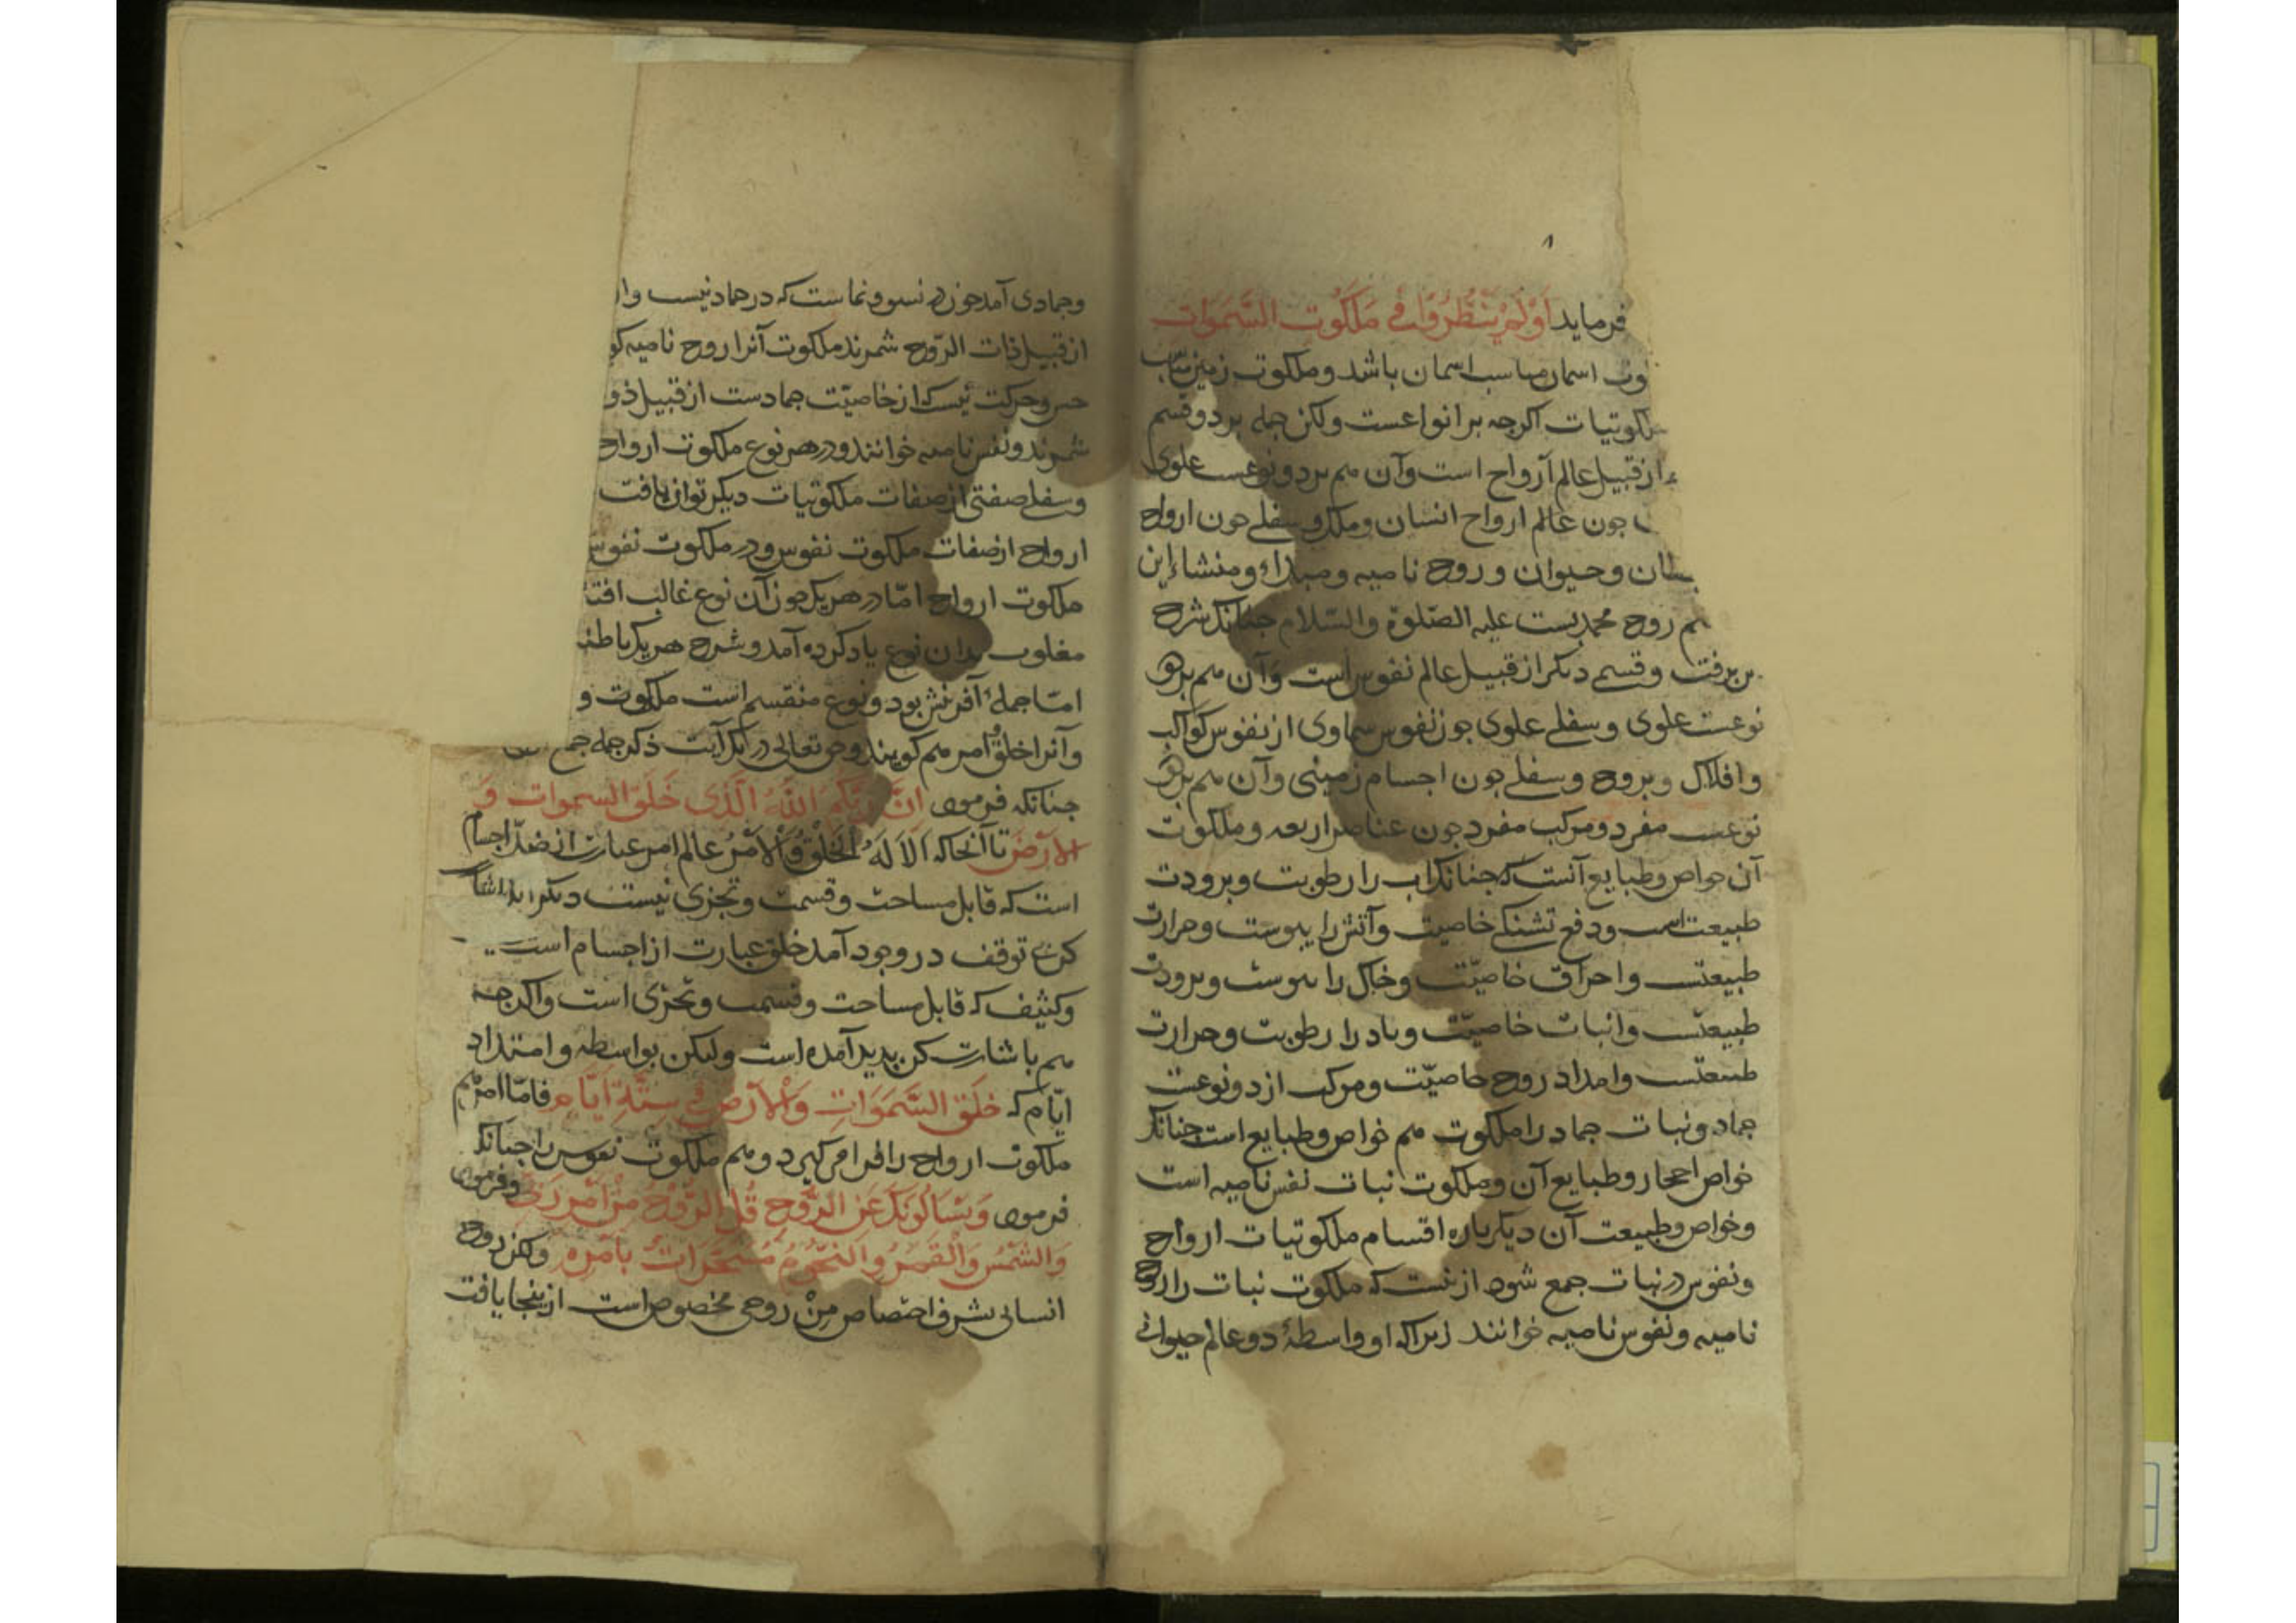 فرماید اَوَلَمْ یَنْظُرُوا فی مَلَکُوتِ السَّمَوَاتِ
اسمان مناسب اسمان باشد و ملکوت زمین
ملکوتیات اکرچه بر انواعست ولکن جمله بر دو قسم
از قبیل عالم ارواح است وآن هم بر دو نوعست علوی
جون عالم ارواح انسان وملک و سفلے جون ارواح
وحیوان و روح نامیه ومبداء ومنشاء این
روح محمدیست علیه الصّلوة والسّلام جنانک شرح
برفت وقسم دیکر از قبیل عالم نفوس است وَآن هم بر دو
نوعست علوی وسفلے علوی جون نفوس سماوی از نفوس کواکب
وافلاک وبروج وسفلے جون اجسام زمینی وآن هم بر دو
نوعست مفرد ومرکب مفرد جون عناصر اربعه وملکوت
آن خواص وطبایع آنست که جنانک اب را رطوبت وبرودت
طبیعت است ودفع تشنکے خاصیت وآتش را یبوست وحرارت
طبیعتست واحراق خاصیّت وخاک را یبوست وبرودت
طبیعتست وانبات خاصیّت وباد را رطوبت وحرارت
طبیعتست وامداد روح خاصیّت ومرکب از دو نوعست
جماد ونبات جماد را ملکوت هم خواص وطبایع است جنانک
خواص احجار وطبایع آن وملکوت نبات نفس نامیه است
وخواص وطبیعت آن دیکرباره اقسام ملکوتیات ارواح
ونفوس در نبات جمع شود ازینست که ملکوت نبات را روح
نامیه ونفوس نامیه خوانند زیراکه او واسطهٔ دو عالم حیوانے
وجمادی آمد جون در نسو ونماست که در جماد نیست
از قبیل ذات الرّوح شمرند ملکوت آنرا روح نامیه
حس وحرکت نیست که از خاصیّت جمادست از قبیل
شمرند ونفس نامیه خوانند ودر هر نوع ملکوت ارواح
وسفلے صفتی از صفات ملکوتیات دیکر توان یافت
ارواح از صفات ملکوت نفوس ودر ملکوت نفوس
ملکوت ارواح امّا در هر یک جون آن نوع غالب
مغلوب بدان نوع یاد کرده آمد وشرح هر یک
امّا جملهٔ آفرینش بر دو نوع منقسم است ملکوت و
وآنرا خلق وامر هم کویند وحق تعالی در یک آیت ذکر جمله جمع
جنانکه فرمود اِنَّ رَبَّکُمُ اللّٰهُ الَّذی خَلَقَ السموات وَ
الاَرْضَ تا آنجاکه اَلاَ لَهُ الْخَلْقُ وَالاَمْرُ عالم امر عبارت از ضدّ اجسام
است که قابل مساحت وقسمت وتجزی نیست دیکر
کن بے توقف در وجود آمد خلق عبارت از اجسام است
وکثیف که قابل مساحت وقسمت وتجزی است واکرجه
هم باشارت کن پدید آمده است ولیکن بواسطه وامتداد
ایّام که خَلَقَ السَّمَوَاتِ وَالاَرْضَ فی سِتَّةِ اَیَّامٍ فامّا امر هم
ملکوت ارواح را فرا میکیرد وهم ملکوت نفوس را جنانک
فرمود وَیَسْاَلُونَکَ عَنِ الرُّوحِ قُلِ الرُّوحُ مِنْ اَمْرِ رَبّی وفرمود
وَالشَّمْسَ وَالْقَمَرَ وَالنُّجُومَ مُسَخَّرَاتٌ بِاَمْرِهِ ولکن روح
انسانی بشرف اختصاص مِنْ روحی مخصوص است ازینجا یافت